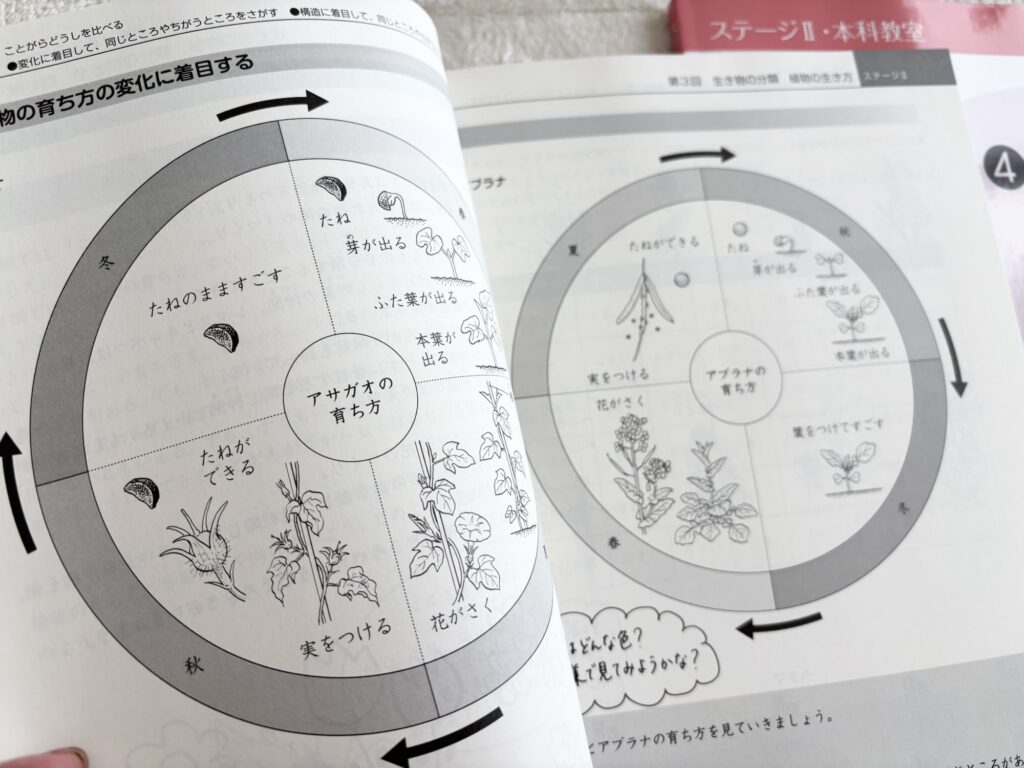 ことがらどうしを比べる
●変化に着目して、同じところやちがうところをさがす ●構造に着目して、同じところ
物の育ち方の変化に着目する
春
たね
芽が出る
ふた葉が出る
本葉が
出る
花がさく
実をつける
秋
たねが
できる
冬
たねのまますごす
アサガオの
育ち方
ステージⅡ・本科教室
第3回 生き物の分類 植物の生き方 ステージⅡ
4
ブラナ
秋
たね
芽が出る
ふた葉が出る
本葉が出る
冬
葉をつけてすごす
春
花がさく
実をつける
夏
たねができる
アブラナの
育ち方
はどんな色?
で見てみようかな?
とアブラナの育ち方を見ていきましょう。